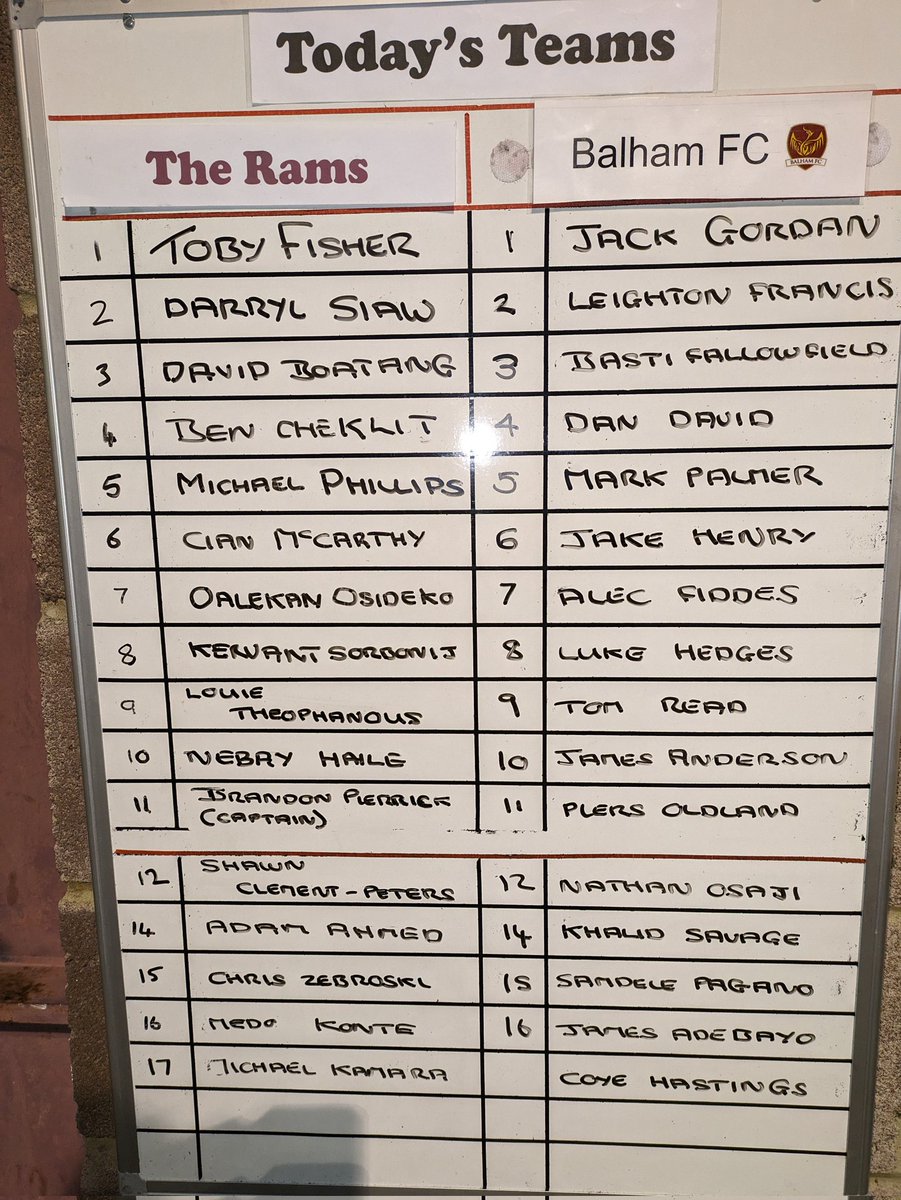 Today's Teams
The Rams
Balham FC
BALHAM FC
1 TOBY FISHER 1 JACK GORDAN
2 DARRYL SIAW 2 LEIGHTON FRANCIS
3 DAVID BOATANG 3 BASTI FALLOWFIELD
4 BEN CHEKLIT 4 DAN DAVID
5 MICHAEL PHILLIPS 5 MARK PALMER
6 CIAN McCARTHY 6 JAKE HENRY
7 OALEKAN OSIDEKO 7 ALEC FIDDES
8 KERVANT SORBONIJ 8 LUKE HEDGES
9 LOUIE
THEOPHANOUS 9 TOM READ
10 NEBAY HAILE 10 JAMES ANDERSON
11 BRANDON PIERRICK
(CAPTAIN) 11 PIERS OLDLAND
12 SHAWN
CLEMENT-PETERS 12 NATHAN OSAJI
14 ADAM AHMED 14 KHALID SAVAGE
15 CHRIS ZEBROSKI 15 SAMDELE PAGANO
16 MEDO KONTE 16 JAMES ADEBAYO
17 MICHAEL KAMARA COYE HASTINGS